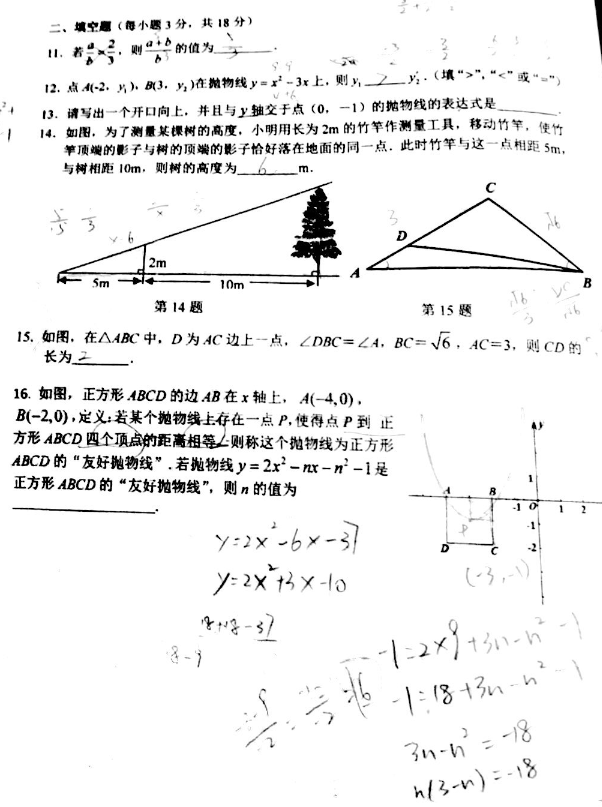 二、填空题（每小题 3 分，共 18 分）
11. 若 a/b = 2/3，则 (a+b)/b 的值为
12. 点 A(-2, y₁), B(3, y₂)在抛物线 y = x² − 3x 上，则 y₁ ______ y₂．（填“>”，“<”或“=”）
13. 请写出一个开口向上，并且与 y 轴交于点（0，－1）的抛物线的表达式是________.
14. 如图，为了测量某棵树的高度，小明用长为 2m 的竹竿作测量工具，移动竹竿，使竹
竿顶端的影子与树的顶端的影子恰好落在地面的同一点．此时竹竿与这一点相距 5m，
与树相距 10m，则树的高度为 6 m.
x 6
2m
5m
10m
第 14 题
3
√6
C
D
A
B
第 15 题
15. 如图，在△ABC 中，D 为 AC 边上一点，∠DBC＝∠A，BC＝√6，AC＝3，则 CD 的
长为 2 .
16. 如图，正方形 ABCD 的边 AB 在 x 轴上，A(−4,0)，
B(−2,0)，定义：若某个抛物线上存在一点 P，使得点 P 到 正
方形 ABCD 四个顶点的距离相等，则称这个抛物线为正方形
ABCD 的“友好抛物线”．若抛物线 y = 2x² − nx − n² − 1 是
正方形 ABCD 的“友好抛物线”，则 n 的值为
________________.
y
1
A B -1 O 1 2
P -1
D C -2
(-3,-1)
y=2x²-6x-37
y=2x²+3x-10
18+18-37
-1=2×9+3n-n²-1
-1=18+3n-n²-1
3n-n²=-18
n(3-n)=-18